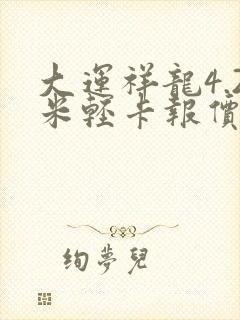 大運祥龍4.2
米輕卡報價
絢夢兒